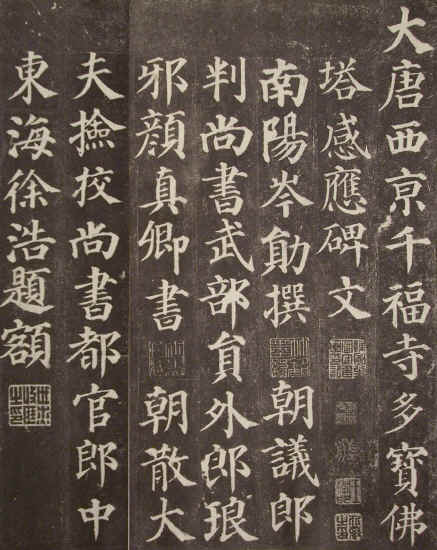 大唐西京千福寺多寳佛
塔感應碑文
南陽岑勛撰 朝議郎
判尚書武部員外郎琅
邪顏真卿書 朝散大
夫撿挍尚書都官郎中
東海徐浩題額